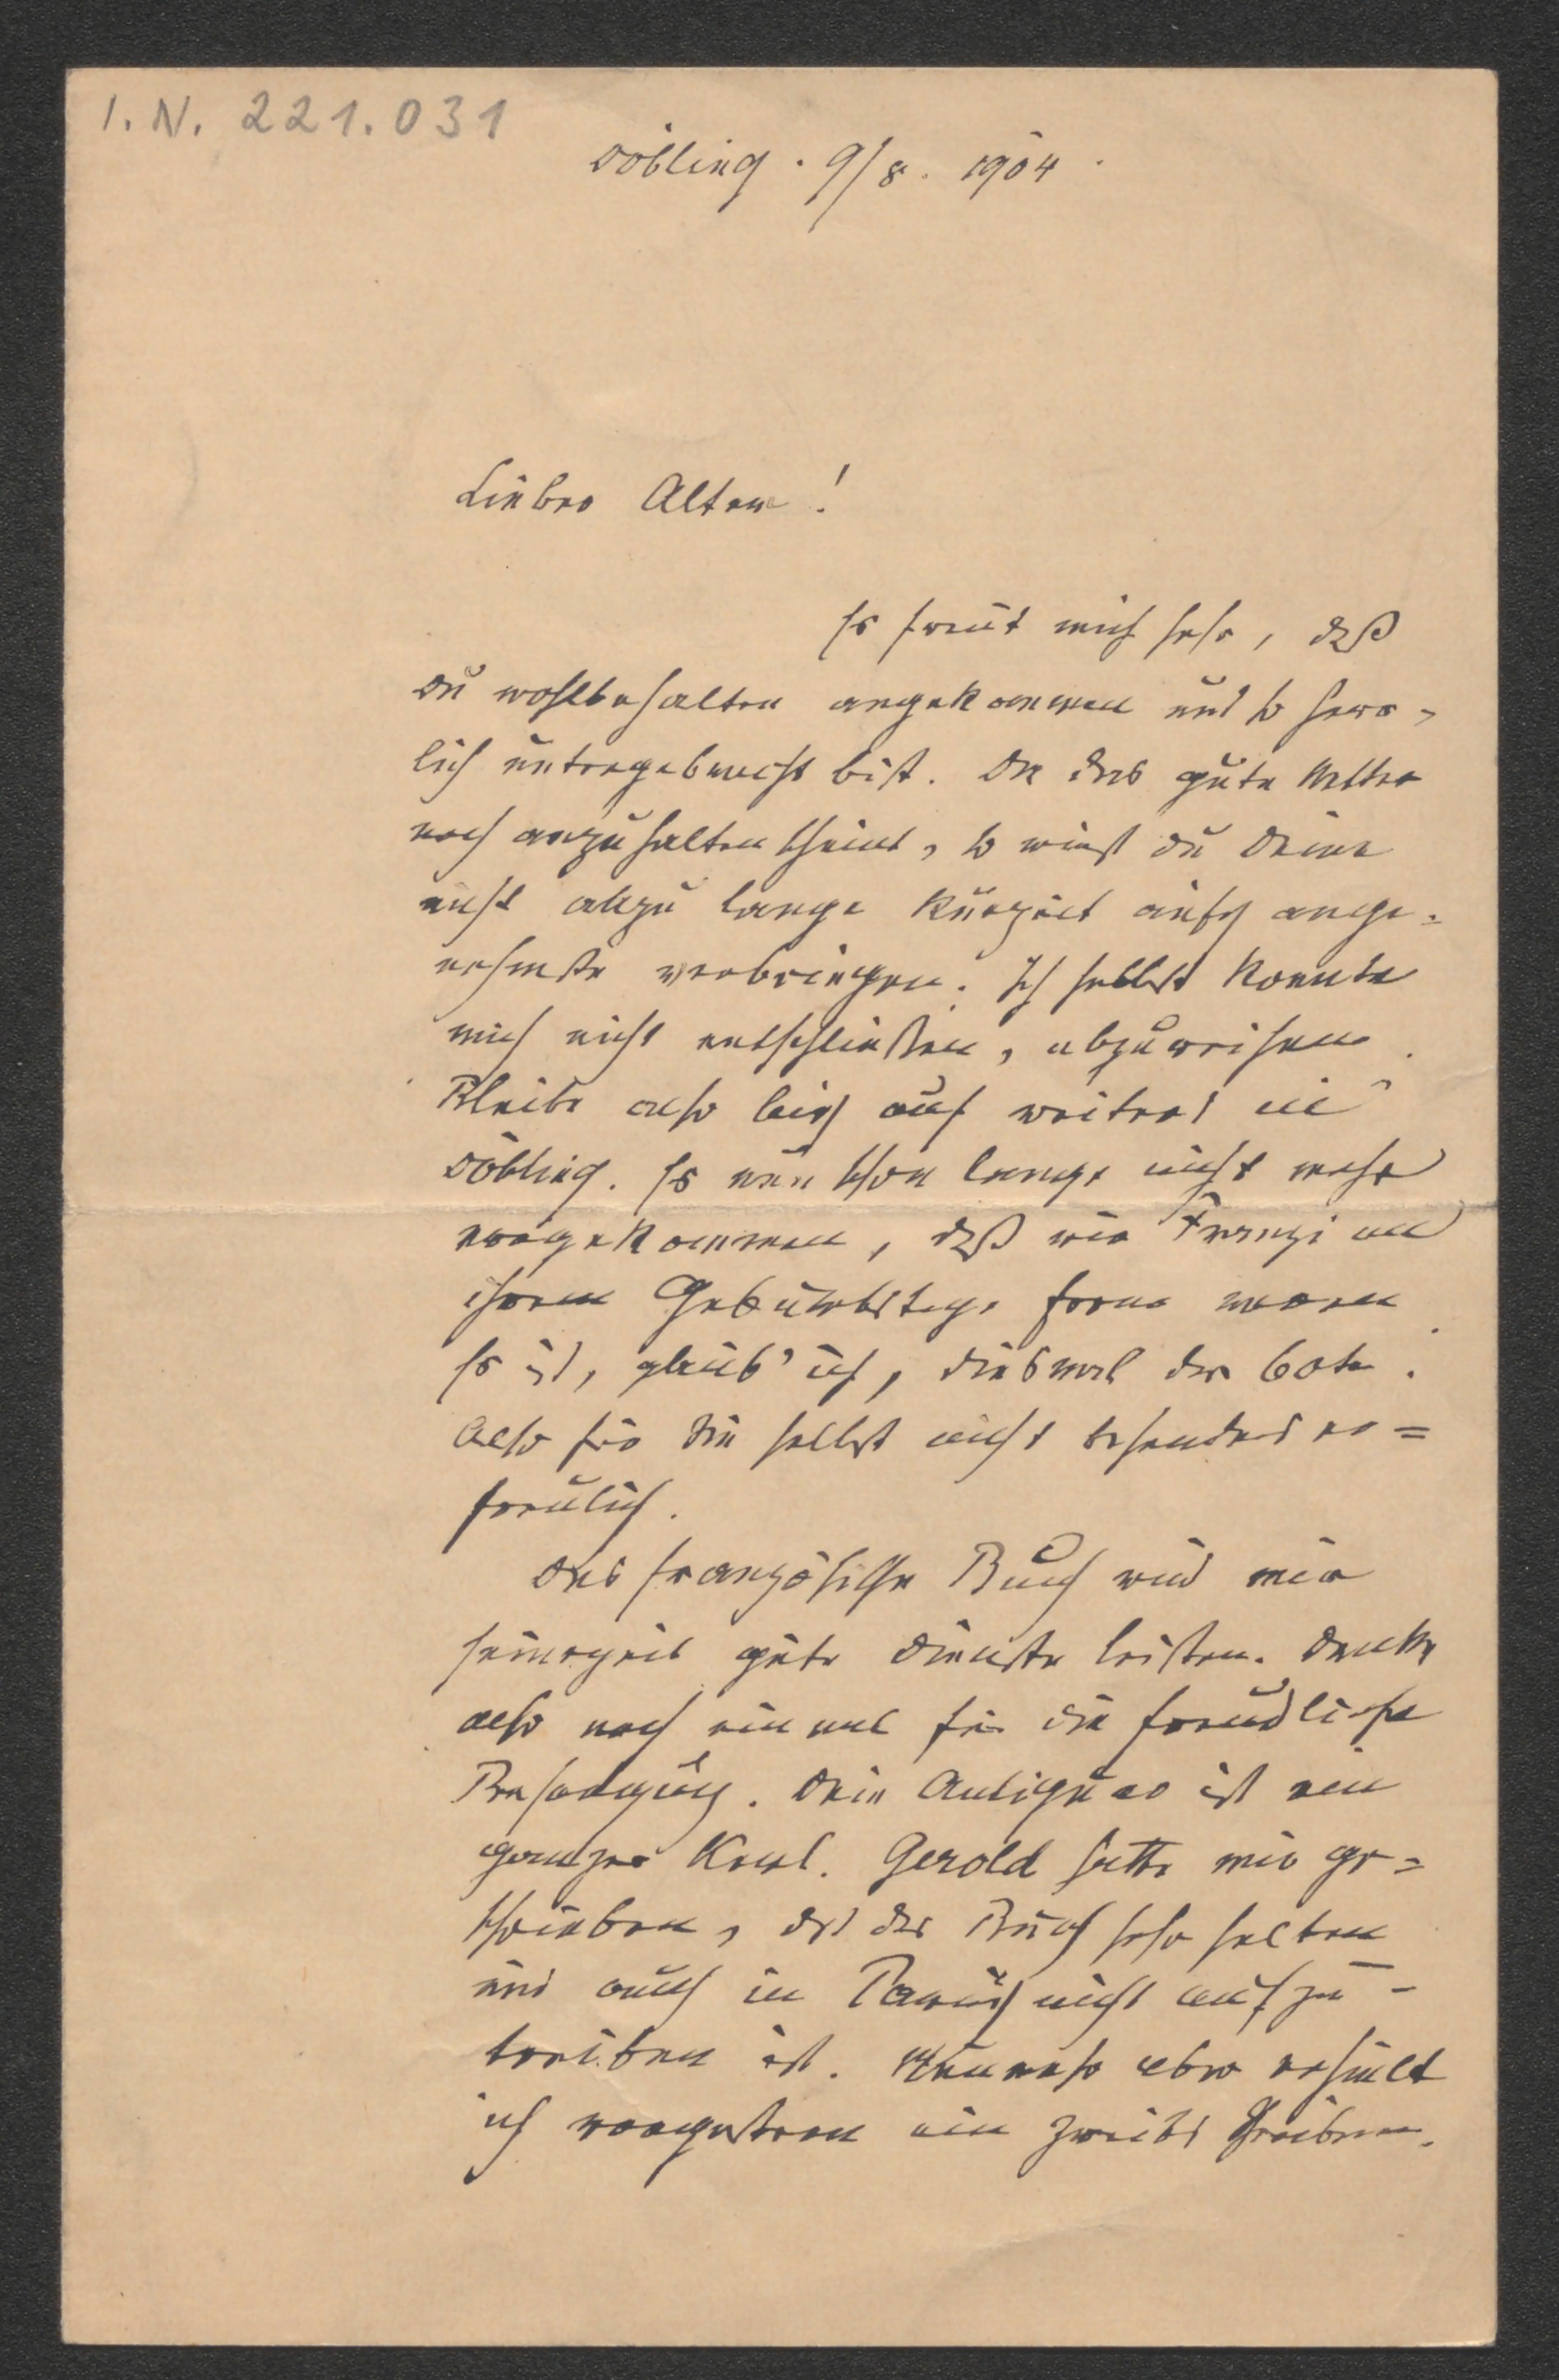 I. N. 221.031
Döbling. 9/8. 1904.
Lieber Alter!
Es freut mich sehr, daß
Du wohlbehalten angekommen und so herr-
lich untergebracht bist. Da das gute Wetter
noch anzuhalten scheint, so wirst Du Deine
nicht allzu lange Kurzeit aufs ange-
nehmste verbringen. Ich selbst konnte
mich nicht entschließen, abzureisen.
Bleibe also bis auf weiteres in
Döbling. Es war schon lange nicht mehr
vorgekommen, daß wir Franzi an
ihrem Geburtstage ferne waren
Es ist, glaub' ich, diesmal der 60te.
Also für sie selbst nicht besonders er=
freulich.
Das französische Buch wird mir
seinerzeit gute Dienste leisten. Danke
also noch einmal für die freundliche
Besorgung. Dein Antiquar ist ein
ganzer Kerl. Gerold hatte mir ge=
schrieben, daß das Buch sehr selten
und auch in Paris nicht aufzu-
treiben ist. aber erhielt
ich vorgestern ein zweites Schreiben.